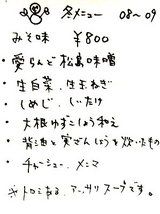 冬メニュー 08〜09
みそ味 ¥800
・愛らんど松島味噌
・生白菜、生玉ねぎ
・しめじ、しいたけ
・大根ゆずこしょう和え
・背油と実ざんしょうを炊いたもの
・チャーシュー、メンマ
※トロミある、アッサリスープです。